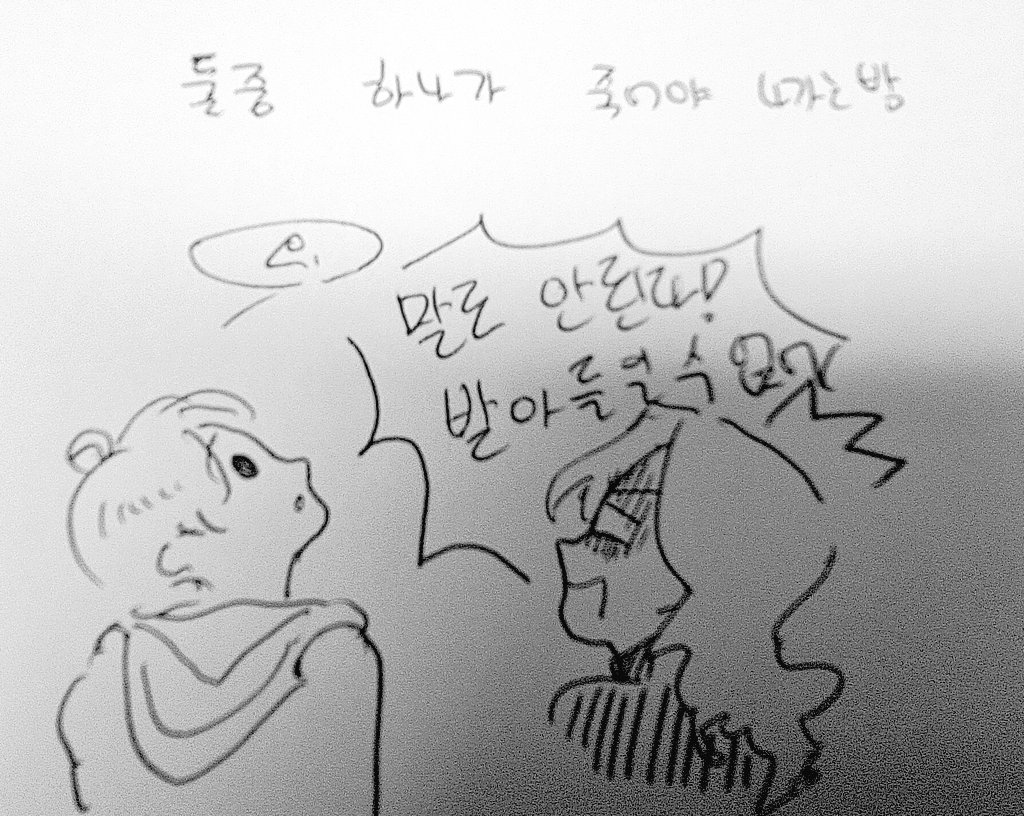 둘중 하나가 죽어야 나가는방
으.
말로 안된다!
받아들일 수 없다